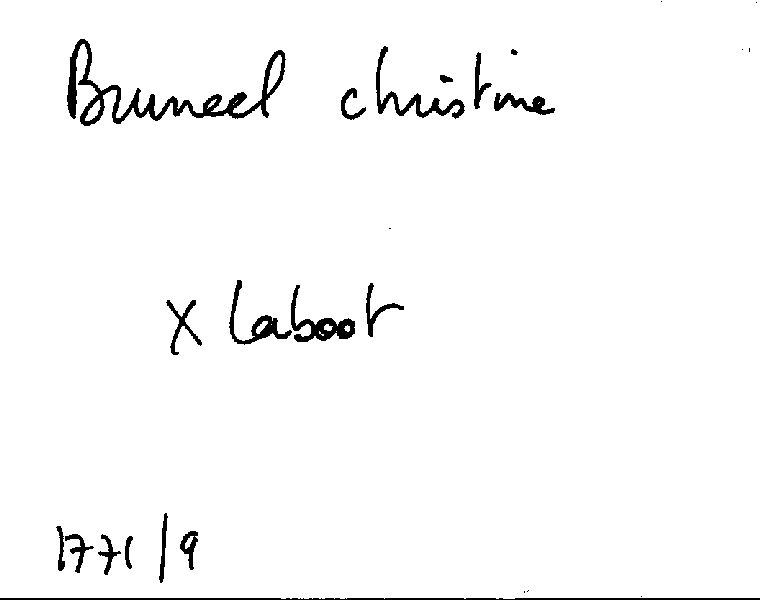 Bruneel christine
x Laboot
1771/9